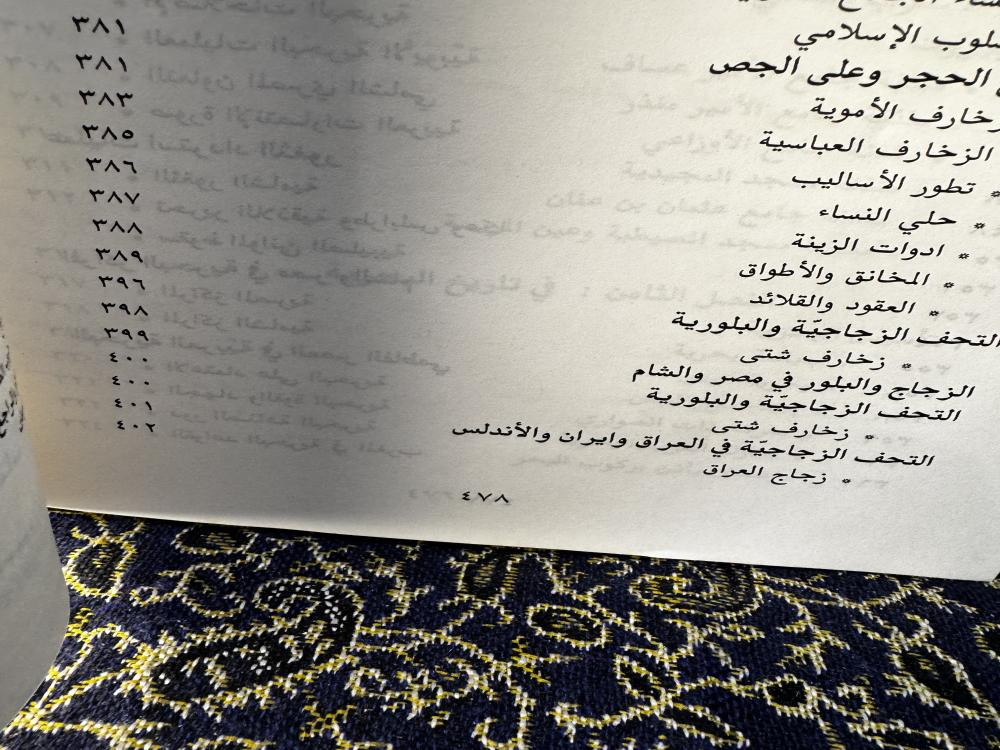 الإسلامي
الحجر وعلى الجص ٣٨١
زخارف الأموية ٣٨١
الزخارف العباسية ٣٨٣
* تطور الأساليب ٣٨٥
* حلي النساء ٣٨٦
* ادوات الزينة ٣٨٧
* المخانق والأطواق ٣٨٨
* العقود والقلائد ٣٨٩
التحف الزجاجيّة والبلورية ٣٩٦
* زخارف شتى ٣٩٨
الزجاج والبلور في مصر والشام ٣٩٩
التحف الزجاجيّة والبلورية ٤٠٠
* زخارف شتى ٤٠٠
التحف الزجاجيّة في العراق وايران والأندلس ٤٠١
* زجاج العراق ٤٠٢
٤٧٨